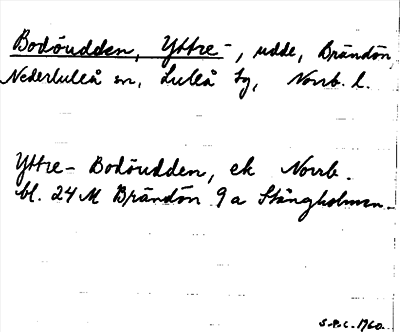 Bodöudden, Yttre-, udde, Brändön,
Nederluleå sn, Luleå tg, Norrb. l.
Yttre- Bodöudden, ek Norrb.
bl. 24 M Brändön 9 a Stångholmen.
S.P.C. 1960.